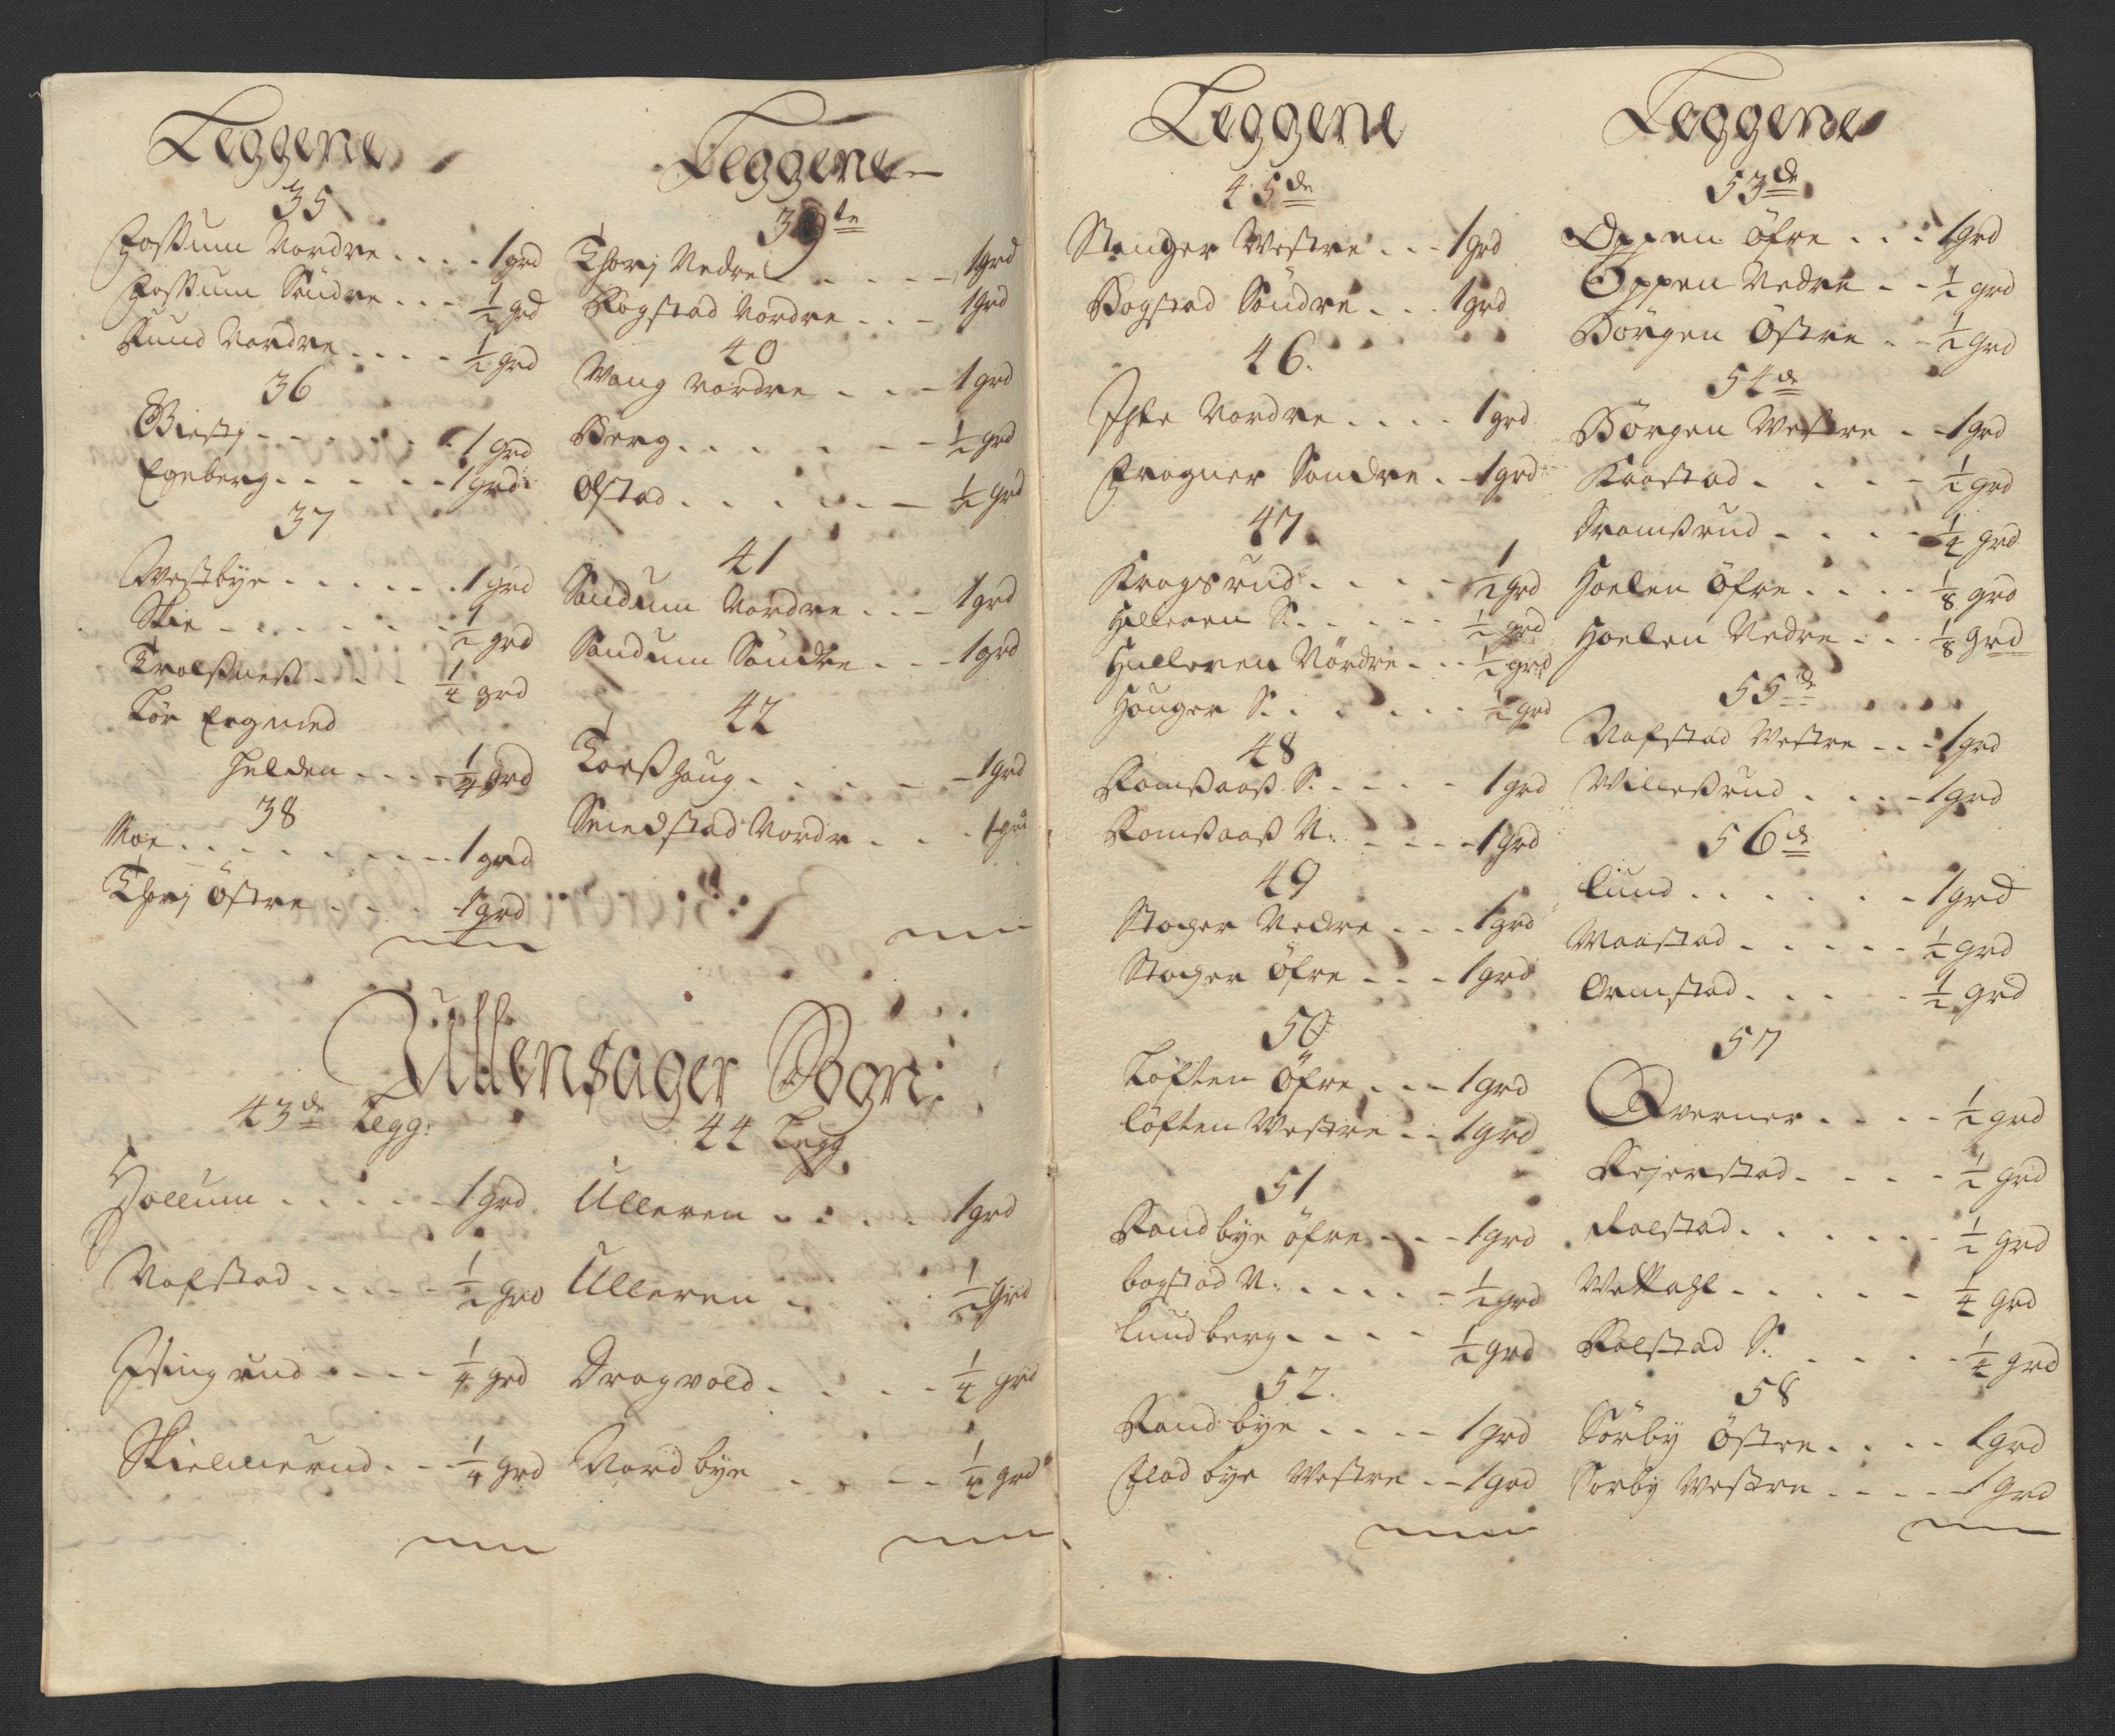 Leggene
35
Fossum Nordre .... 1 grd
Fossum Söndre ... ½ grd
Lund Nordre .... ½ grd
36
Giestj ...... 1 grd
Egeberg ...... 1 grd
37
Westbye ...... 1 grd
Skie ...... ½ grd
Trolsnes .... ¼ grd
Lör
Helden .... ¼ grd
38
Moe ......... 1 grd
Thorj Östre .... 1 grd
Leggene
39te
Thorj Nedre ..... 1 grd
Rogstad Nordre ... 1 grd
40
Wang Nordre ... 1 grd
Berg ...... ½ grd
Olstad ...... ½ grd
41
Sandum Nordre ... 1 grd
Sandum Söndre ... 1 grd
42
Torshaug ...... 1 grd
Smedstad Nordr ... 1 grd
Ullensager Sogn:
43de Legg:
Hollum ..... 1 grd
Nafstad ..... ½ grd
Isingrud .... ¼ grd
Skielmerud ... ¼ grd
44 Legg
Ulleren ..... 1 grd
Ulleren ..... ½ grd
Dragvold .... ¼ grd
Nordbye ..... ¼ grd
Leggene
45de
Stenger Westre ... 1 grd
Bogstad Söndre ... 1 grd
46.
Ihle Nordre .... 1 grd
Frogner Sondre .. 1 grd
47.
Krogsrud .... ½ grd
Hilleren S. ..... ½ grd
Hilleren Nördre ... ½ grd
Houger S. ..... ½ grd
48
Romsaas S. .... 1 grd
Romsaas N: .... 1 grd
49
Stager Nedre ... 1 grd
Stager Öfre ... 1 grd
50
Löften Öfre ... 1 grd
Löften Westre .. 1 grd
51
Randbye öfre ... 1 grd
bogstad N: ..... ½ grd
Lundberg .... ½ grd
52.
Randbye .... 1 grd
Fladbye Westre .. 1 grd
Leggene
53de
Oppen öfre ... 1 grd
Oppen Nedre .. ½ grd
Börgen Östre .. ½ grd
54de
Börgen Westre .. 1 grd
Kaastad .... ½ grd
Kramsrud .... ¼ grd
Hoelen Öfre .... ⅛ grd
Hoelen Nedre ... ⅛ grd
55de
Nafstad Westre ... 1 grd
Willesrud .... 1 grd
56de
Lund ...... 1 grd
Waastad ..... ½ grd
Ormstad ..... ½ grd
57
Qverner .... ½ grd
Rejerstad .... ½ grd
Kolstad ...... ½ grd
..... ¼ grd
Kolstad S. ..... ¼ grd
58
Sörby Östre .... 1 grd
Sorby Westre .... 1 grd